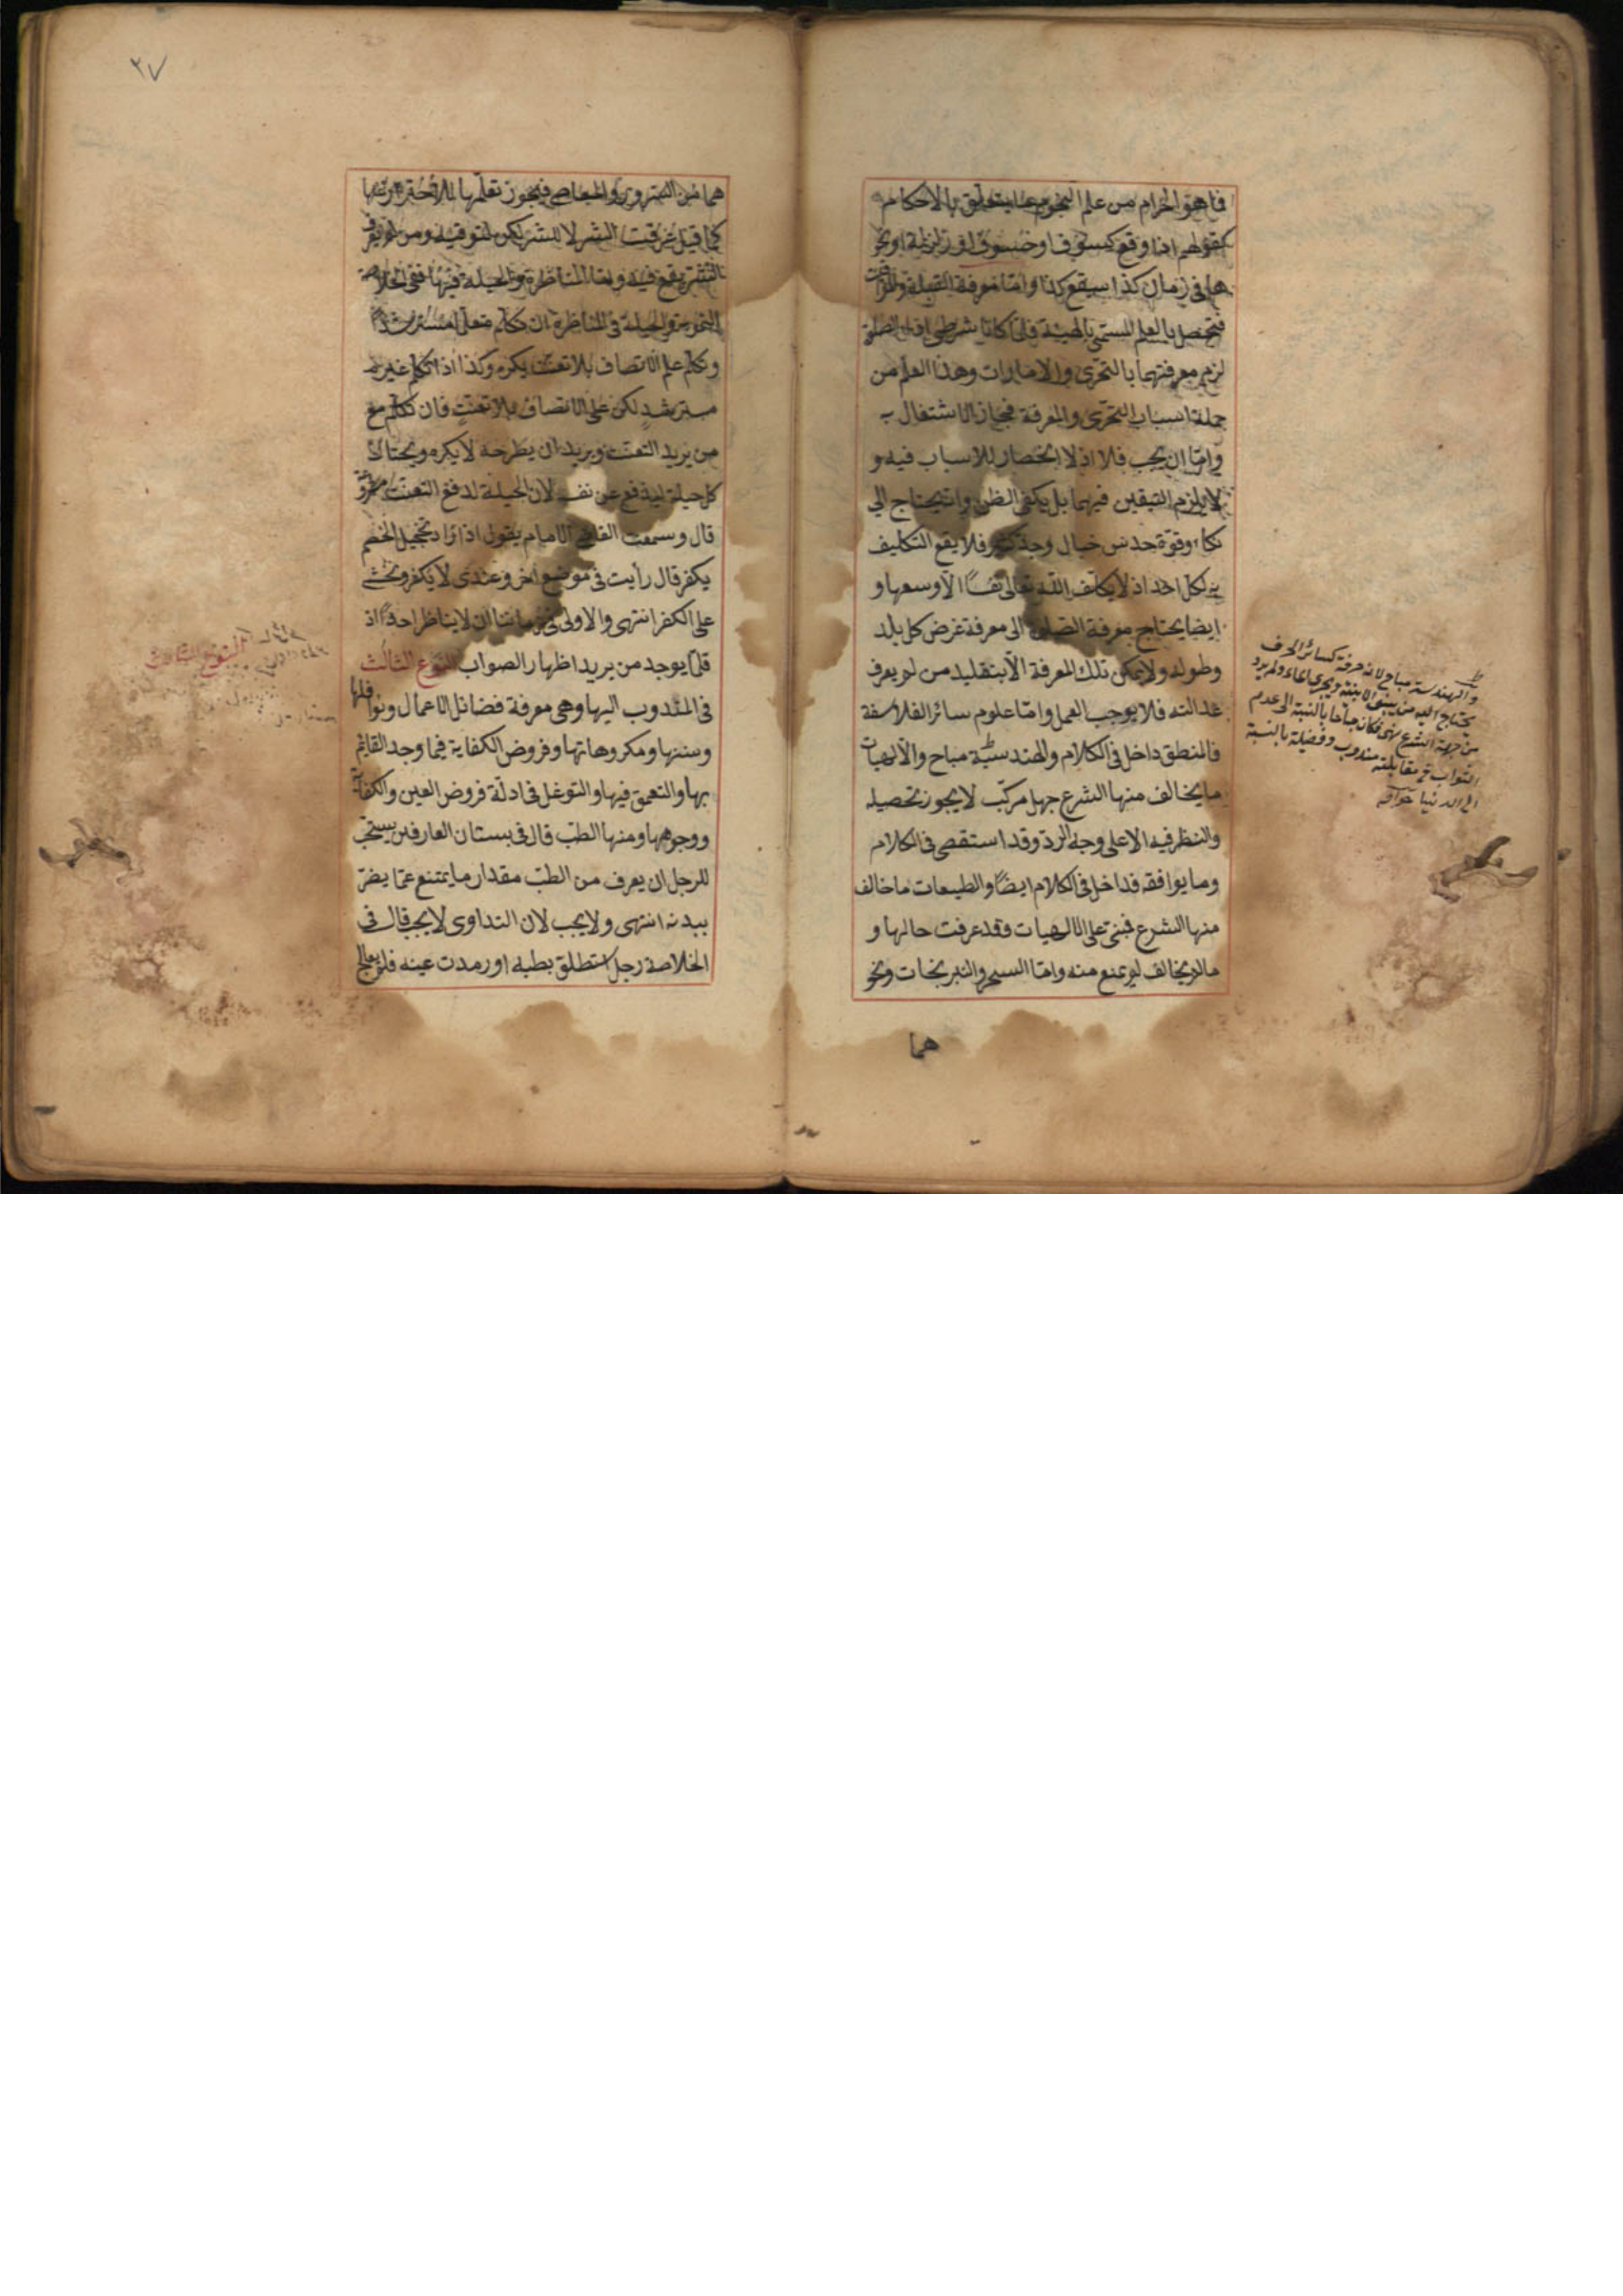 فما هو الحرام من علم النجوم ما يتعلق بالاحكام
كقولهم اذا وقع كسوف او خسوف او زلزلة او نحو
ها فى زمان كذا سيقع كذا واما معرفة القبلة والمواقيت
فتحصل بالعلم المسمى بالهيئة فلما كانا شرطى اداء الصلوة
لزم معرفتهما بالتحرى والامارات وهذا العلم من
جملة اسباب التحرى والمعرفة فجاز الاشتغال به
واما ان يجب فلا اذ لا انحصار للاسباب فيه و
لا يلزم التيقن فيهما بل يكفى الظن وانه يحتاج الى
ذكاء وقوة حدس خيال وجد كثير فلا يقع التكليف
به لكل احد اذ لا يكلف الله تعالى نفسًا الا وسعها و
ايضا يحتاج معرفة القبلة الى معرفة عرض كل بلد
وطوله ولا يمكن تلك المعرفة الا بتقليد من لم يعرف
عدالته فلا يوجب العمل واما علوم سائر الفلاسفة
فالمنطق داخل فى الكلام والهندسة مباح والالهيات
ما يخالف منها الشرع جهل مركب لا يجوز تحصيله
والنظر فيه الا على وجه الرد وقد استقصى فى الكلام
وما يوافقه فداخل فى الكلام ايضًا والطبيعات ما خالف
منها الشرع فبنى على الالهيات وقد عرفت حالها و
ما لم يخالف لم يمنع منه واما السحر والنيرنجات ونحو
هما
والهندسة مباح لانه حرفة كسائر الحرف
يحتاج اليه من يبنى الابنية ويجرى الماء ولم يرد
من جهة الشرع نهى فكان مباحا بالنسبة الى عدم
الثواب فى مقابلته مندوب وفضيلة بالنسبة
الى الدنيا
٢٧
هما من الشرور والمعاصى فيجوز تعلمها للاحتراز عنها
كما قيل عرفت الشر لا للشر لكن لتوقيه ومن لم يعرف
الشر يقع فيه واما المناظرة والحيلة فيها ففى الخلاصة
التمويه والحيلة فى المناظرة ان تكلم متعلما مسترشدًا
وتكلم على الانصاف بلا تعنت يكره وكذا اذا تكلم غير
مسترشد لكن على الانصاف بلا تعنت فان تكلم مع
من يريد التعنت ويريد ان يطرحه لا يكره ويحتال
كل حيلة ليدفع عن نفسه لان الحيلة لدفع التعنت مشروعة
قال وسمعت القاضى الامام يقول اذا اراد تخجيل الخصم
يكفر قال رأيت فى موضع اخر وعندى لا يكفر ويخشى
على الكفر انتهى والاولى فى زماننا ان لا يناظر احدًا اذ
قلما يوجد من يريد اظهار الصواب النوع الثالث
فى المندوب اليها وهى معرفة فضائل الاعمال ونوافلها
وسننها ومكروهاتها وفروض الكفاية فيما وجد القائم
بها والتعمق فيها والتوغل فى ادلة فروض العين والكفاية
ووجوهها ومنها الطب قال فى بستان العارفين يستحب
للرجل ان يعرف من الطب مقدار ما يمتنع عما يضر
ببدنه انتهى ولا يجب لان التداوى لا يجب قال فى
الخلاصة رجل استطلق بطنه او رمدت عينه فلم يعالج
النوع الثالث